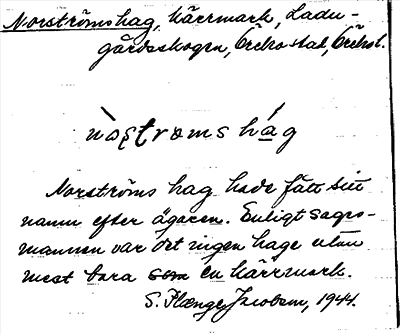 Norströms hag, kärrmark, Ladu-
gårdsskogen, Örebro stad, Örebro l.
nòstromshág
Norströms hag hade fått sitt
namn efter ägaren. Enligt sages-
mannen var det ingen hage utan
mest bara som en kärrmark.
S. Flænge Jacobson, 1944.